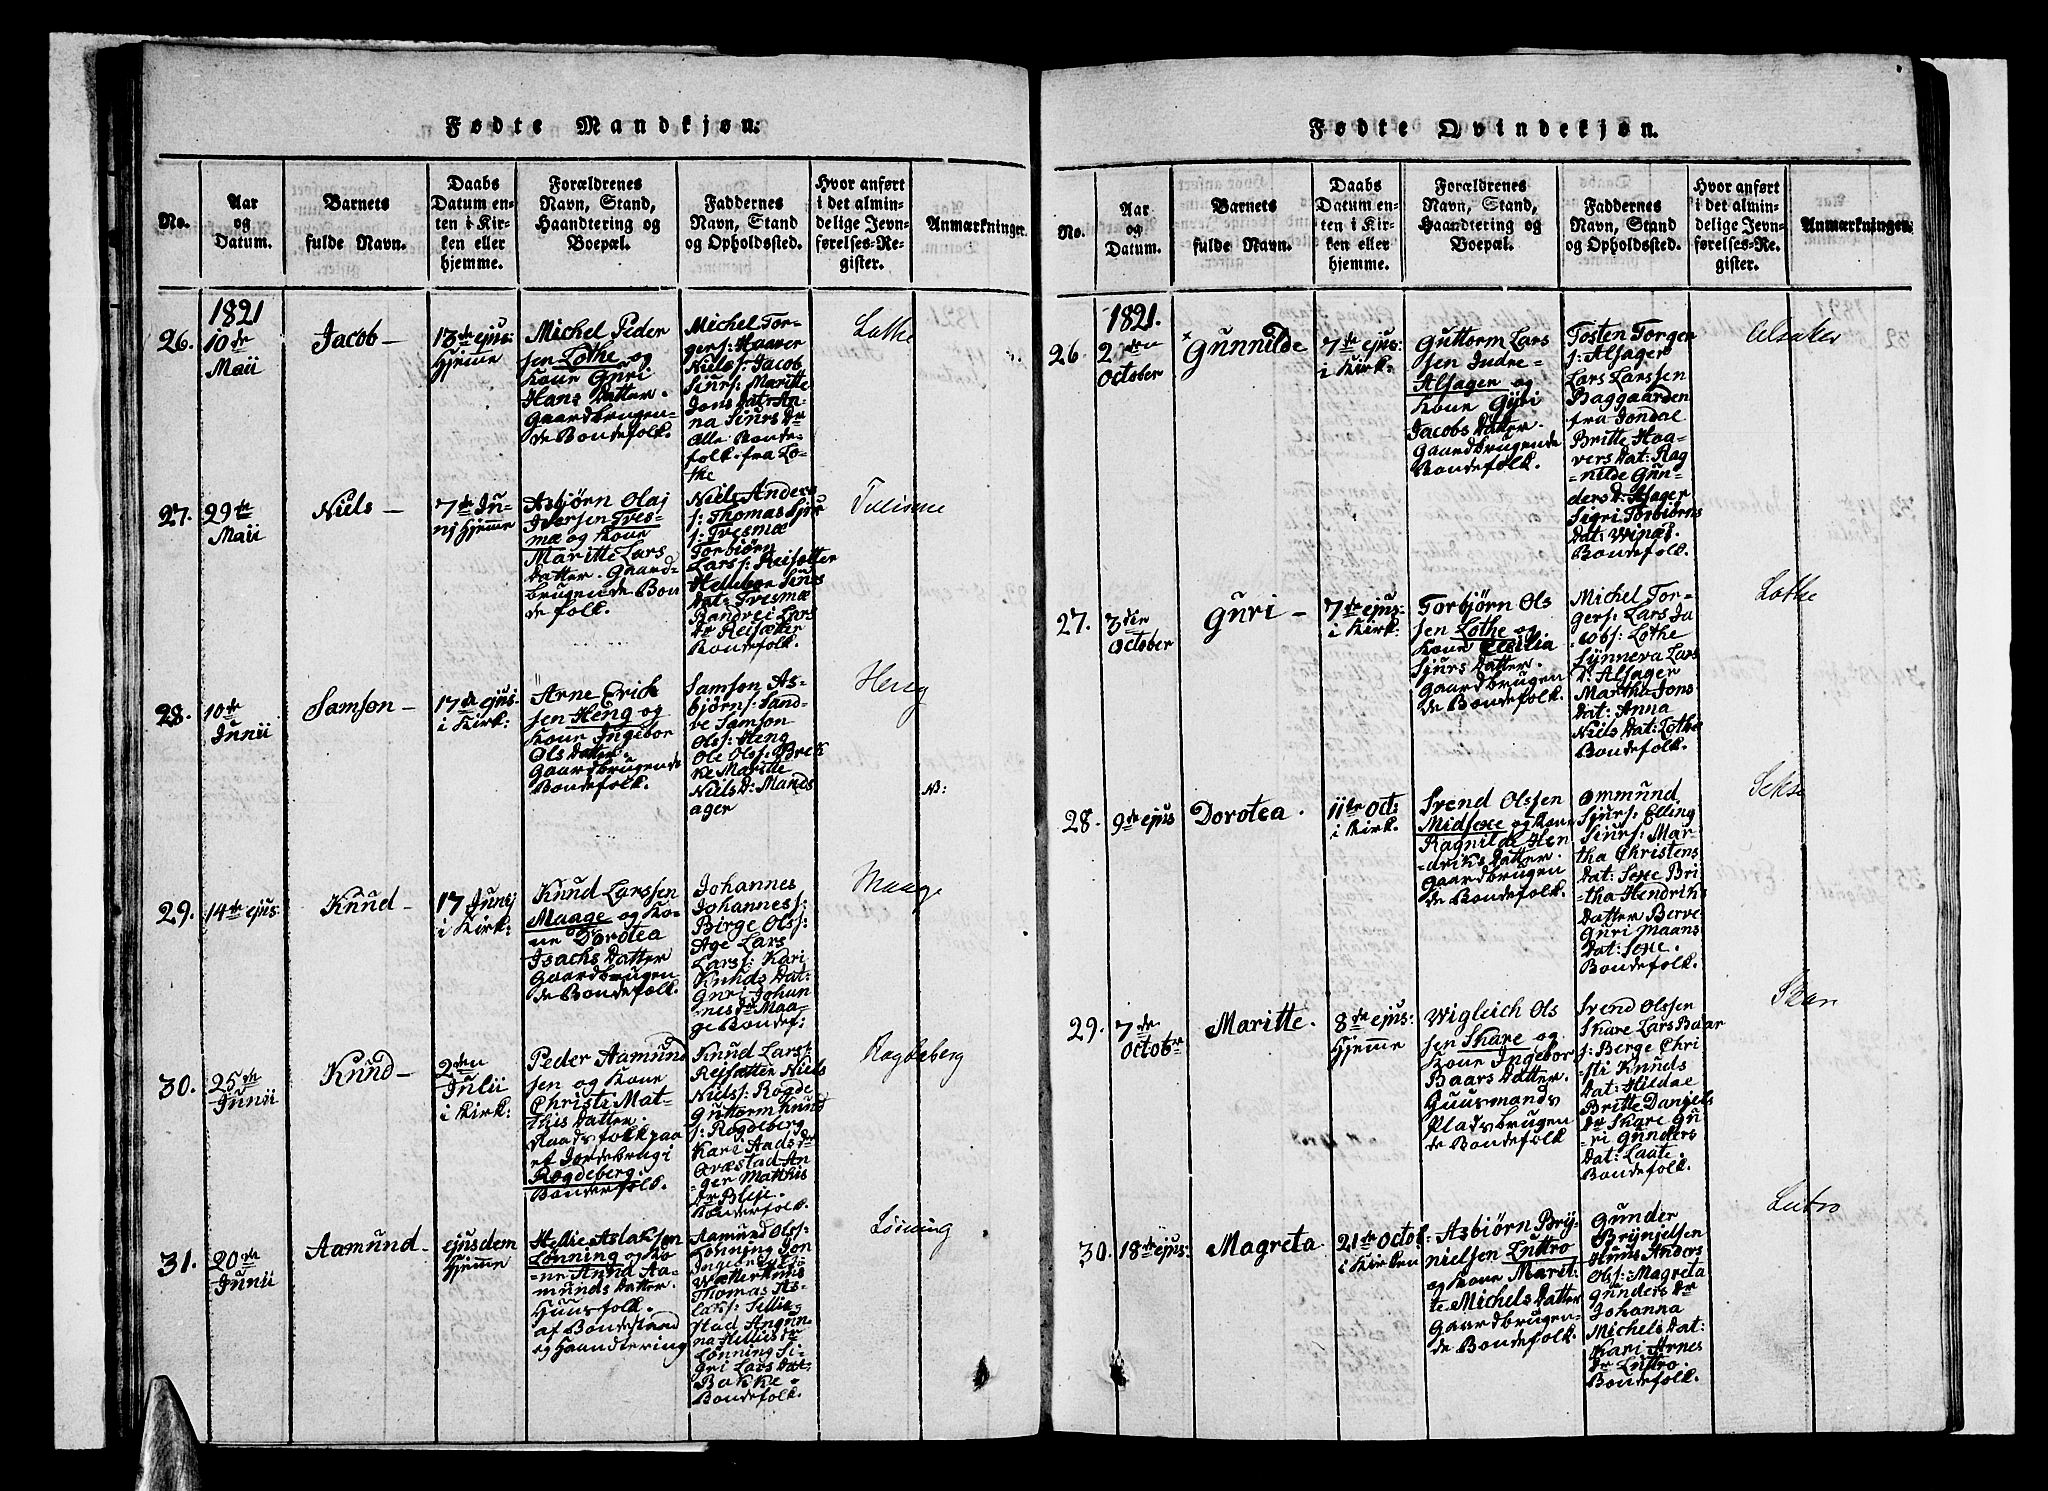 Fødte Mandkjøn.
No.
Aar
og
Datum.
Barnets
fulde Navn.
Daabs
Datum en-
ten i Kir-
ken eller
hjemme.
Forældrenes
Navn, Stand,
Haandtering og
Boepæl.
Faddernes
Navn, Stand
og Opholdssted.
Hvor anført
i det almin-
delige Jevn-
førelses-Re-
gister.
Anmærkninger.
1821
26.
10de
Maii
Jacob
13de ejus:
Hjemme
Michel Peder
sen Lothe og
Kone Guri
Hans Datter.
Gaardbrugen-
de Bondefolk.
Michel Tor-
gers: Haaver
Niels: Jacob
Siurs: Maritte
Jons Dat: An-
na Siurs Dr
Alle Bonde-
folk fra Lo-
the
Lothe
27.
29de
Maii
Niels
7de Ju-
nj Hjemme
Asbjørn Olaj
Iversen Tves-
mæ og Kone
Maritte Lars
Datter. Gaard-
brugende Bon
de folk.
Niels Anders
s: Thomas Sjur
s: Tvesmæ
Torbjørn
Lars s: Reisætter
Hellebor Siurs
Dat: Tvesmæ
Randrei Lars
Dr Reisæter
Bondefolk.
28.
10de
Junii
Samson
17de ejus
i Kirk:
Arne Erick
sen Heng og
Kone Ingebor
Ols Datter.
Gaardbrugende
Bondefolk.
Samson As-
bjørns: Sand-
ve Samson
Ols s: Heng
Ole Ols s: Brek
ke Maritte
Niels D: Mands
ager
Hereg
N:
29.
14de ejus
Knud
17 Junij
i Kirk:
Knud Larssen
Maage og Ko-
ne Dorotea
Isachs Datter
Gaardbrugen
de Bondefolk.
Johannes
Johannes s:
Birge Ols s:
Age Lars
Lars s: Kari
Knuds Dat:
Guri Johan
nes Dr Maa-
ge Bondef:
Maage
30.
25de
Junii
Knud
2den
Julii
i Kirk:
Peder Aamund
sen og Kone
Christi Mat-
this Datter.
Raadsfolk paa
et Jordebrug i
Rogdeberg.
Bondefolk.
Knud Lars s:
Reisætter Niels
Niels s: Rogde
Guttorm Knud
s: Rogdeberg
Kari Aads Dr
Qvæstad An-
ger Matthis
Dr Bleje.
Bondefolk.
Ragdeberg
31.
20de
Junii
Aamund
ejusdem
Hjemme
Hellie Aslaksen
Lønning og Ko
ne Anna Aa-
munds Datter.
Huusfolk.
af Bondestand
og Haandtering
Aamund Ols s:
Lønning Jon
Thomas As-
laks s: Sellie-
stad Angun-
na Hellies Dr
Lønning Si-
gri Lars Dat:
Bakke.
Bondefolk.
Lønning
Fødte Qvindekjøn.
No.
Aar
og
Datum.
Barnets
fulde Navn.
Daabs
Datum en-
ten i Kir-
ken eller
hjemme.
Forældrenes
Navn, Stand,
Haandtering og
Boepæl.
Faddernes
Navn, Stand
og Opholdssted.
Hvor anført
i det almin-
delige Jevn-
førelses-Re-
gister.
Anmærkninger.
1821.
26
2den
October
Gunnilde
7de ejus:
i Kirk:
Guttorm Lars
sen Indre-
Alsager og
Kone Gyri
Jacobs Datter.
Gaardbrugende
Bondefolk.
Tosten Torger
s: Alsager
Lars Larssen
Baggaarden
fra Jondal
Britte Haa-
vers Dat: Rag
nilde Gun-
ders D: Alsager
Sigri Torbiørns
Dat: Winæs.
Bondefolk.
Alsaker
27.
3die
October
Guri
7de ejus:
i Kirk:
Torbjørn Ols
sen Lothe og
Kone Cecilia
Sjurs Datter.
Gaardbrugen
de Bondefolk.
Michel Tor-
gers: Lars Ja
cobs: Lothe
Synneva Lars
D: Alsager
Martha Jons
Dat: Anna
Niels Dat: Lothe
Bondefolk.
Lothe
28.
9de ejus
Dorotea.
11te Oct:
i Kirk.
Svend Olssen
Midsexe og Kone
Ragnilde Hen
driks Datter.
Gaardbrugen
de Bondefolk.
Ommund
Sjurs: Elling
Siurs: Mar-
tha Christens
Dat: Sexe Bri
tha Hendriks
Datter Berve
Guri Maans
Dat: Sexe.
Bondefolk.
Sekse
29.
7de
Octobr
Maritte.
8de ejus:
Hjemme
Wigleich Ols
sen Skare og
Kone Ingebor
Baars Datter.
Huusmands
Pladsbrugen
de Bondefolk
Svend Olssen
Skare Lars Baar
s: Berge Chri
sti Knuds
Dat: Hildae
Britte Daniels
Dr Skare Gu
ri Gunders
Dat: Laate.
Bondefolk.
Skare
30.
18de ejus:
Magreta.
21de Octob
i Kirken
Asbiørn Bry-
nielsen Luttro
og Kone Marit-
te Michels Datter
Gaardbrugen-
de Bondefolk.
Gunder
Brynjelsen
Huus Anders
Ols s: Magreta
Gunders Dr
Johanna
Michels Dat:
Kari Arnes
Dr Luttro.
Bondefolk.
Lutro